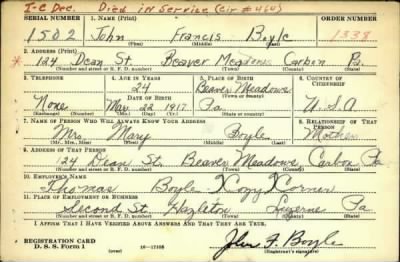 I-C Dec. Died in Service (Cir #464)
SERIAL NUMBER 1. NAME (Print) ORDER NUMBER
1502 John Francis Boyle 1338
(First) (Middle) (Last)
2. ADDRESS (Print)
* 124 Dean St. Beaver Meadows Carbon Pa.
(Number and street or R. F. D. number) (Town) (County) (State)
3. TELEPHONE 4. AGE IN YEARS 5. PLACE OF BIRTH 6. COUNTRY OF CITIZENSHIP
24 Beaver Meadows
DATE OF BIRTH (Town or county)
None Mar. 22 1917 Pa U.S.A
(Exchange) (Number) (Mo.) (Day) (Yr.) (State or country)
7. NAME OF PERSON WHO WILL ALWAYS KNOW YOUR ADDRESS 8. RELATIONSHIP OF THAT PERSON
Mrs. Mary Boyle Mother
(Mr., Mrs., Miss) (First) (Middle) (Last)
9. ADDRESS OF THAT PERSON
124 Dean St. Beaver Meadows Carbon Pa
(Number and street or R. F. D. number) (Town) (County) (State)
10. EMPLOYER'S NAME
Thomas Boyle Kozy Korner
11. PLACE OF EMPLOYMENT OR BUSINESS
Second St. Hazleton Luzerne Pa
(Number and street or R. F. D. number) (Town) (County) (State)
I AFFIRM THAT I HAVE VERIFIED ABOVE ANSWERS AND THAT THEY ARE TRUE.
REGISTRATION CARD
D. S. S. Form 1 16—17105 John F. Boyle
(Registrant's signature)